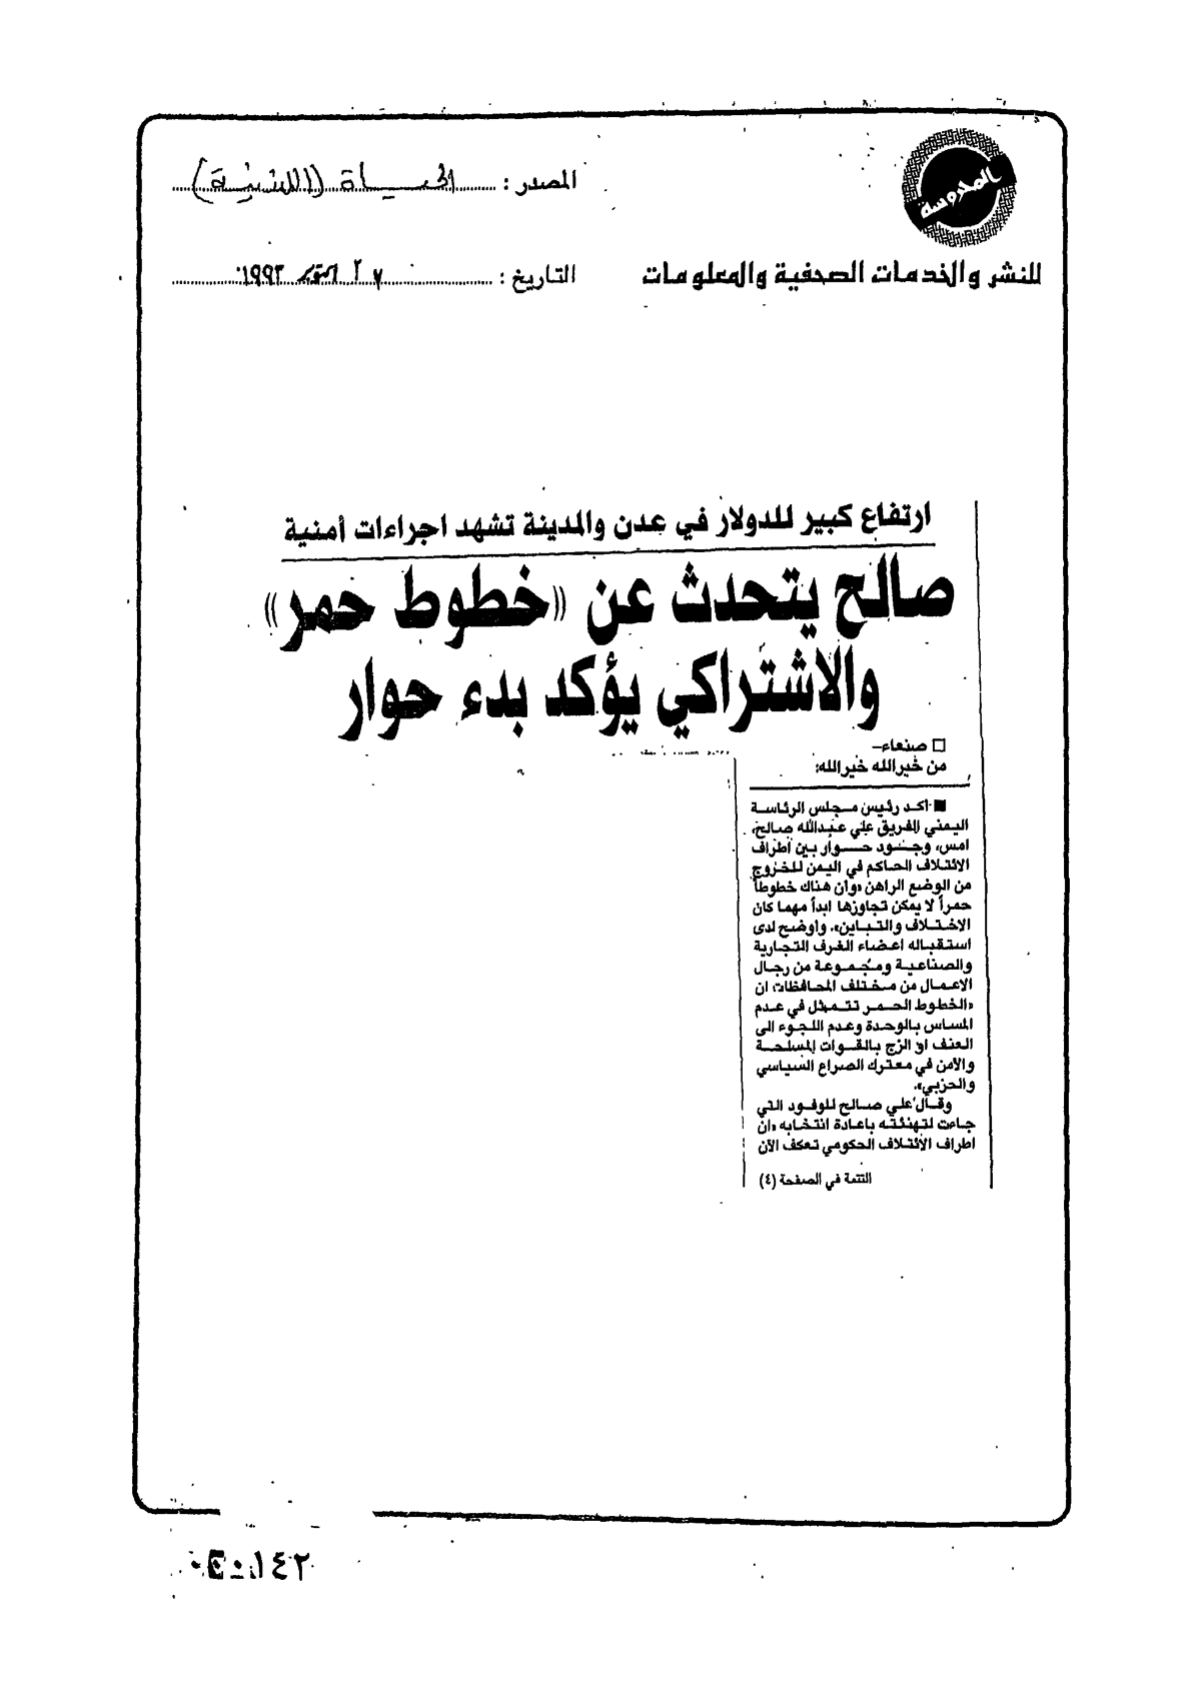 المحروسة
للنشر والخدمات الصحفية والمعلومات
المصدر : الحياة (اللندنية)
التاريخ : ٢٧ أكتوبر ١٩٩٣
ارتفاع كبير للدولار في عدن والمدينة تشهد اجراءات أمنية
صالح يتحدث عن «خطوط حمر»
والاشتراكي يؤكد بدء حوار
□ صنعاء –
من خيرالله خيرالله:
■ أكد رئيس مجلس الرئاسة
اليمني الفريق علي عبدالله صالح،
امس، وجود حوار بين أطراف
الائتلاف الحاكم في اليمن للخروج
من الوضع الراهن «وأن هناك خطوطاً
حمراً لا يمكن تجاوزها ابداً مهما كان
الاختلاف والتباين». واوضح لدى
استقباله اعضاء الغرف التجارية
والصناعية ومجموعة من رجال
الاعمال من مختلف المحافظات ان
«الخطوط الحمر تتمثل في عدم
المساس بالوحدة وعدم اللجوء الى
العنف او الزج بالقوات المسلحة
والأمن في معترك الصراع السياسي
والحزبي».
وقال علي صالح للوفود التي
جاءت لتهنئته باعادة انتخابه «ان
اطراف الائتلاف الحكومي تعكف الآن
التتمة في الصفحة (٤)